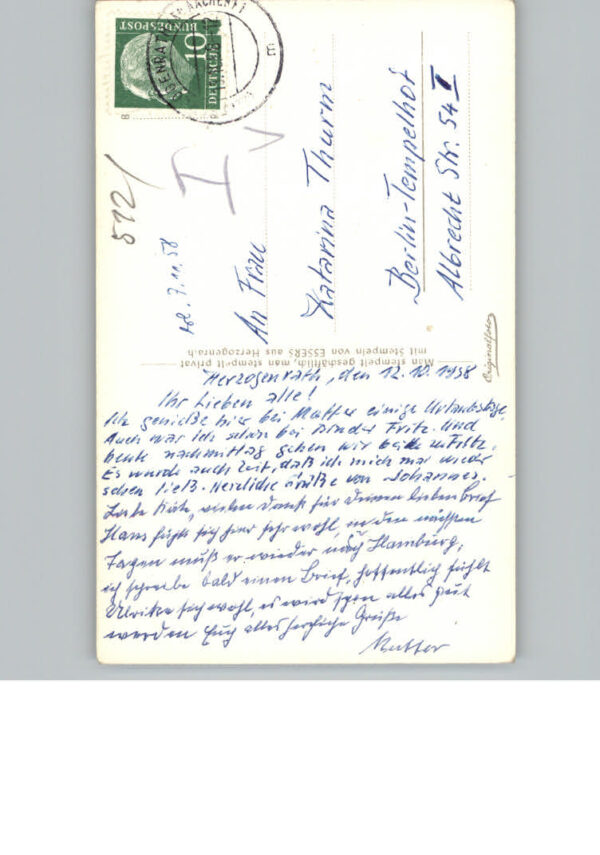 DEUTSCHE
BUNDESPOST
10
592/
I V
d. 7.11.58
An Frau
Katarina Thurm
Berlin-Tempelhof
Albrecht Str. 54 I
Originalfoto
Man stempelt geschäftlich, man stempelt privat
mit Stempeln von ESSERS aus Herzogenrath
Herzogenrath, den 12.10.1958
Ihr Lieben alle!
Ich genieße hier bei Mutter einige Urlaubstage.
Auch war ich schon bei Bruder Fritz. Und
heute nachmittag gehen wir beide zu Fritz.
Es wurde auch Zeit, daß ich mich mal wieder
sehen ließ. Herzliche Grüße von Johannes.
Liebe Käte, vielen Dank für Deinen lieben Brief
Hans fühlt sich hier sehr wohl, in den nächsten
Tagen muß er wieder nach Hamburg,
ich schreibe bald einen Brief, hoffentlich fühlt
Ulrike sich wohl, es wird schon alles gut
werden Euch alles herzliche Grüße
Mutter